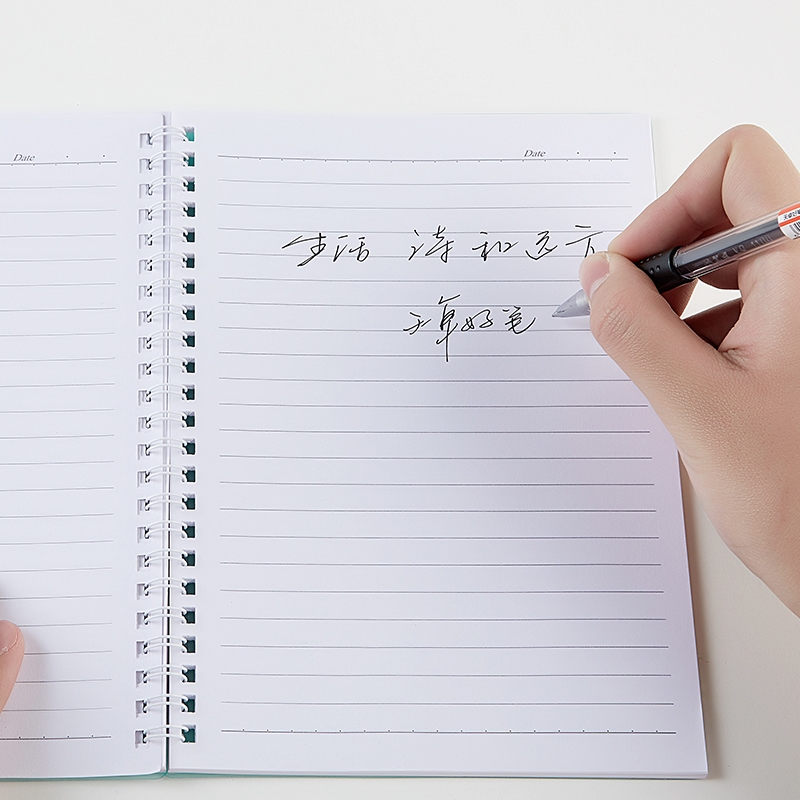 Date
Date
生活 诗和远方
天卓好笔